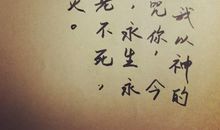 我以神的
咒你，今
，永生永
老不死，
。